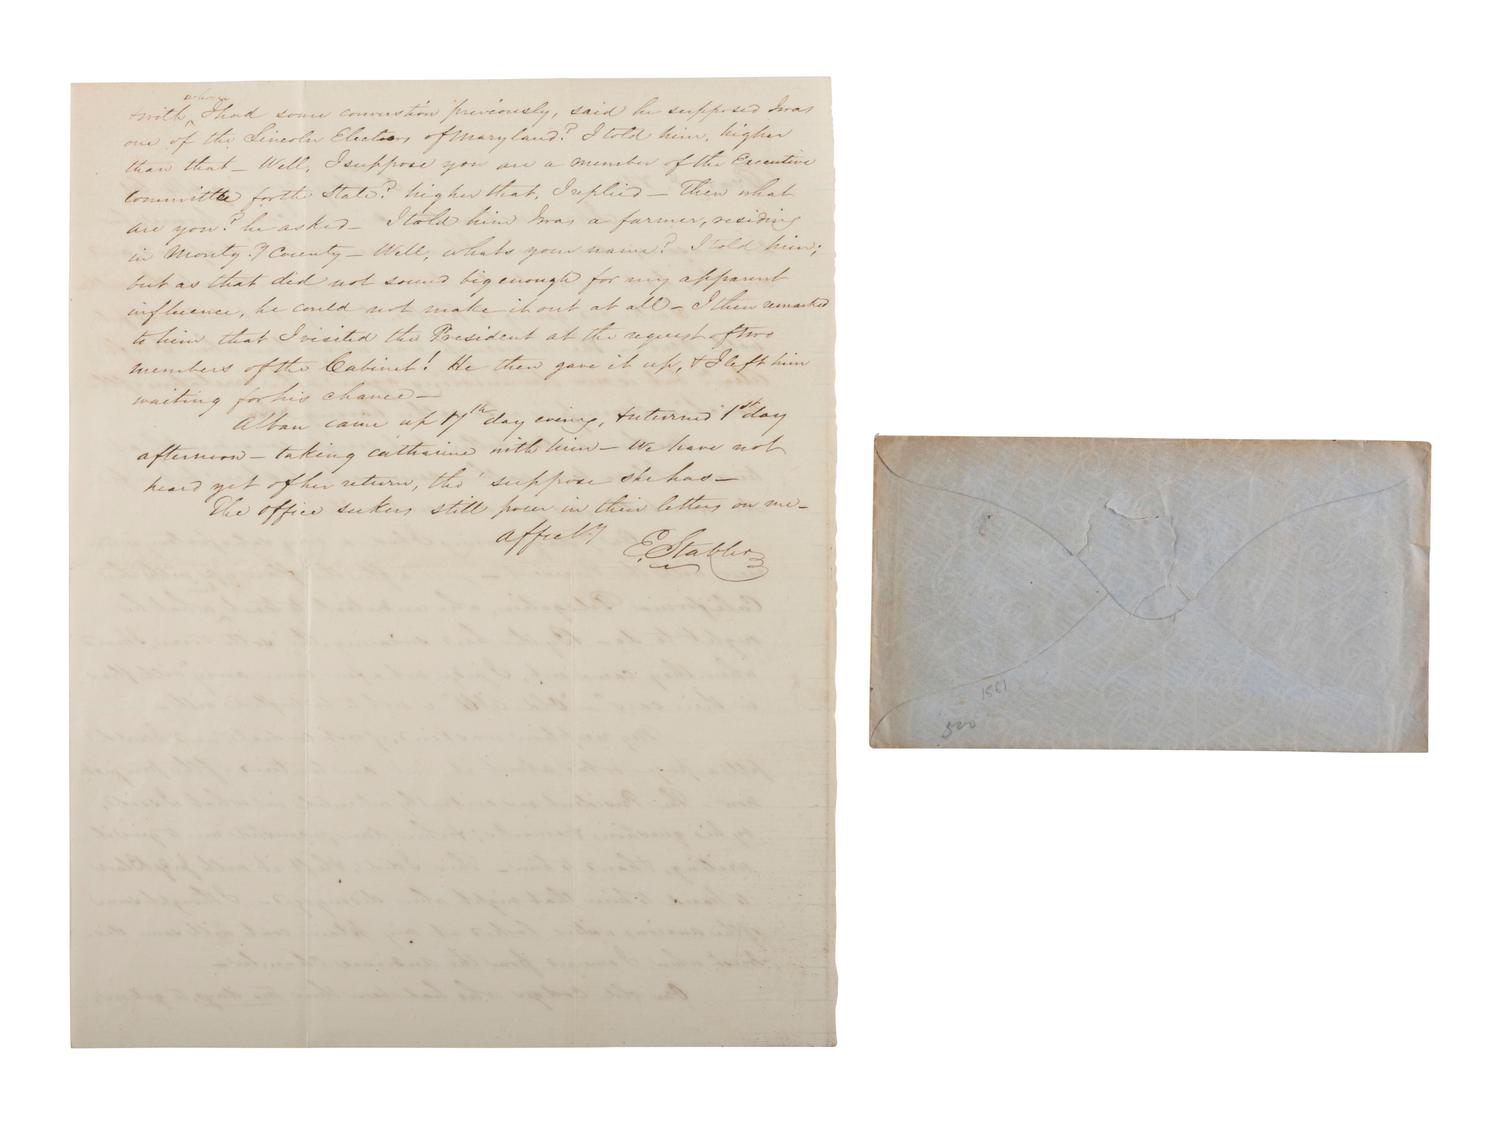 whom
& with ^ I had some conversation previously, said he supposed I was
one of the Lincoln Electors of Maryland? I told him, higher
than that — Well, I suppose you are a member of the Executive
Committee for the State? higher that, I replied — Then what
are you? he asked — I told him I was a farmer, residing
in Montgy County — Well, whats your name? I told him;
but as that did not sound big enough for my apparent
influence, he could not make it out at all — I then remarked
to him that I visited the President at the request of two
members of the Cabinet! He then gave it up, & I left him
waiting for his chance —
Alban came up 7th day eveng, & returned 1st day
afternoon — taking Catharine with him — We have not
heard yet of her return, tho' suppose she has —
The office seekers still pour in their letters on me —
affecty
E. Stabler
1861
500